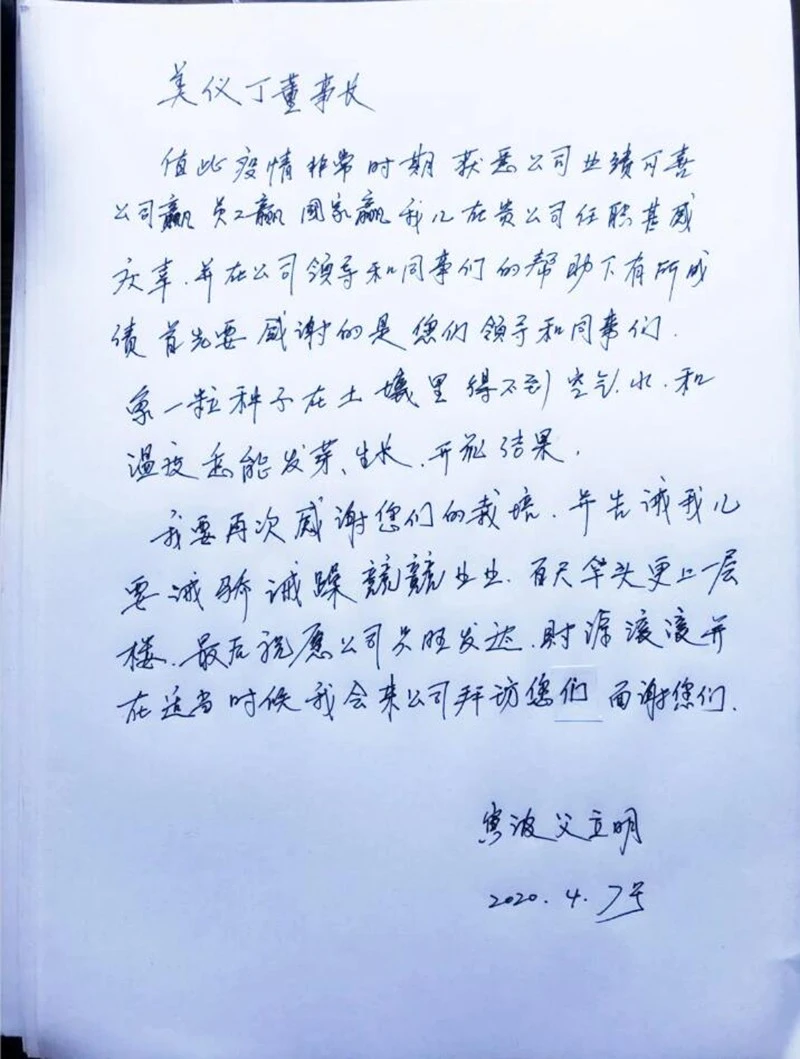 美仪丁董事长
值此疫情非常时期获悉公司业绩可喜
公司赢 员工赢 国家赢 我儿在贵公司任职甚感
庆幸.并在公司领导和同事们的帮助下有所成
绩 首先要感谢的是您们领导和同事们.
象一粒种子在土壤里得不到空气.水.和
温度 怎能发芽、生长.开花结果.
我要再次感谢您们的栽培.并告诫我儿
要诫骄诫躁 兢兢业业.百尺竿头更上一层
楼.最后祝愿公司兴旺发达.财源滚滚并
在适当时候我会来公司拜访您们 面谢您们.
波父立明
2020.4.7号